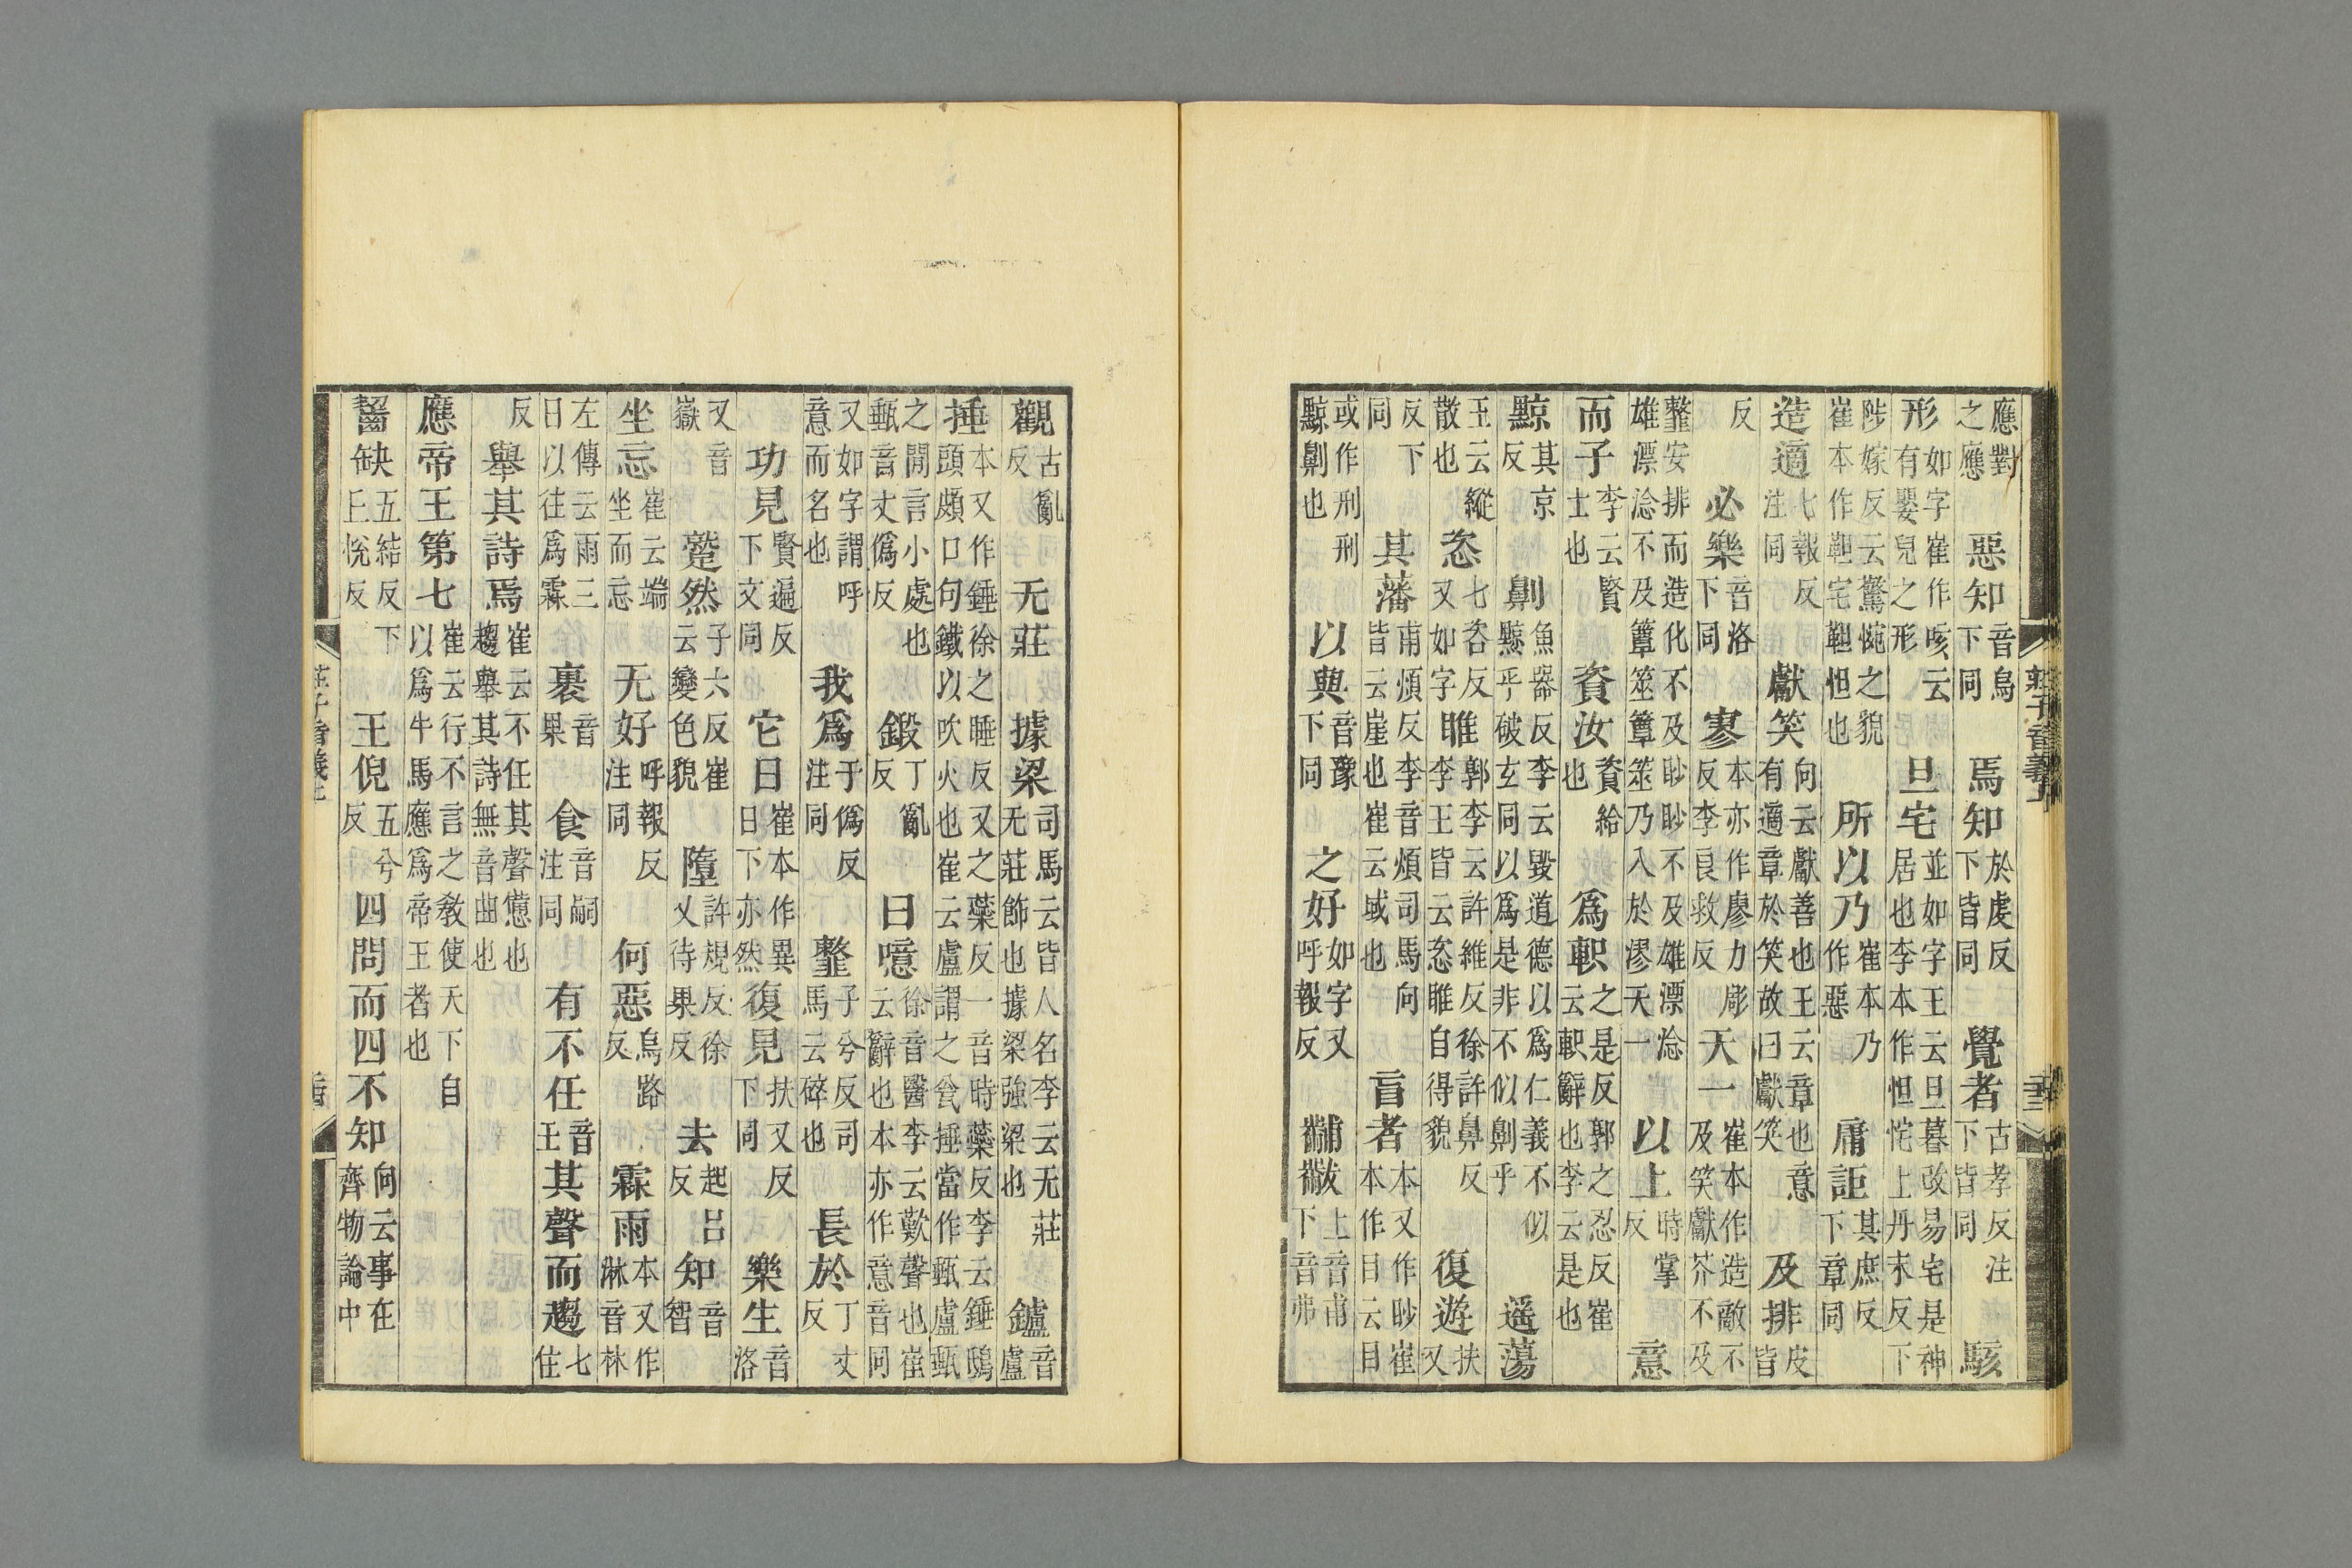 莊子音義上
應對之應 惡知音烏下同 焉知於虔反下皆同 覺者古孝反注下皆同 駭
形如字崔作咳云有嬰兒之形 旦宅並如字王云旦暮改易宅是神居也李本作怛㤞上丹末反下
陟嫁反云驚惋之貌崔本作靼宅靼怛也 所以乃崔本乃作惡 庸詎其庶反下章同
造適七報反注同 獻笑向云獻善也王云章也意有適章於笑故曰獻笑 及排皮皆
反 必樂音洛下同 寥本亦作廖力彫反李良救反 天一崔本作造敵不及笑獻芥不及
𩐋安排而造化不及眇眇不及雄漂淰雄漂淰不及簟筮簟筮乃入於漻天一 以上時掌反 意
而子李云賢士也 資汝資給也 爲軹之是反郭之忍反崔云軹辭也李云是也
黥其京反 劓魚器反李云毀道德以爲仁義不似黥乎破玄同以爲是非不似劓乎 遥蕩
王云縱散也 恣七咨反又如字 睢郭李云許維反徐許鼻反李王皆云恣睢自得貌 復遊扶又
反下同 其藩甫煩反李音煩司馬向皆云崖也崔云域也 盲者本又作眇崔本作目云目
或作刑刑黥劓也 以與音豫下同 之好如字又呼報反 黼黻上音甫下音弗
觀古亂反 无莊 據梁司馬云皆人名李云无莊无莊飾也據梁強梁也 鑪音盧
捶本又作錘徐之睡反又之蘂反一音時蘂反李云錘鴟頭頗口句鐵以吹火也崔云盧謂之瓮捶當作甀盧甀
之閒言小處也甀音丈僞反 鍛丁亂反 曰噫徐音醫李云歎聲也崔云辭也本亦作意音同
又如字謂呼意而名也 我爲于僞反注同 𩐋子兮反司馬云碎也 長於丁丈反
功見賢遍反下文同 它日崔本作異日下亦然 復見扶又反下同 樂生音洛
又音嶽 蹵然子六反崔云變色貌 墮許規反徐又待果反 去起呂反 知音智
坐忘崔云端坐而忘 无好呼報反注同 何惡烏路反 霖雨本又作淋音林
左傳云雨三日以往爲霖 裹音果 食音嗣注同 有不任音王 其聲而趨七住
反 舉其詩焉崔云不任其聲憊也趨舉其詩無音曲也
應帝王第七崔云行不言之教使天下自以爲牛馬應爲帝王者也
齧缺五結反下丘悅反 王倪五兮反 四問而四不知向云事在齊物論中